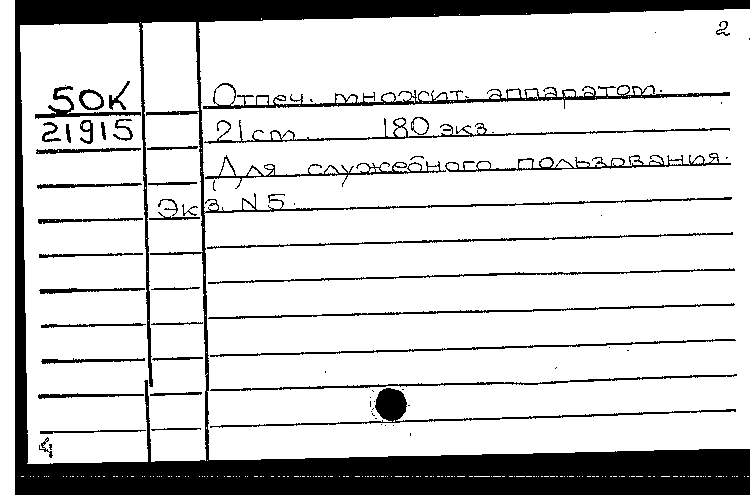 2
50К Отпеч. множит. аппаратом.
21915 21 cm. 180 экз.
Для служебного пользования.
Экз. N 5.